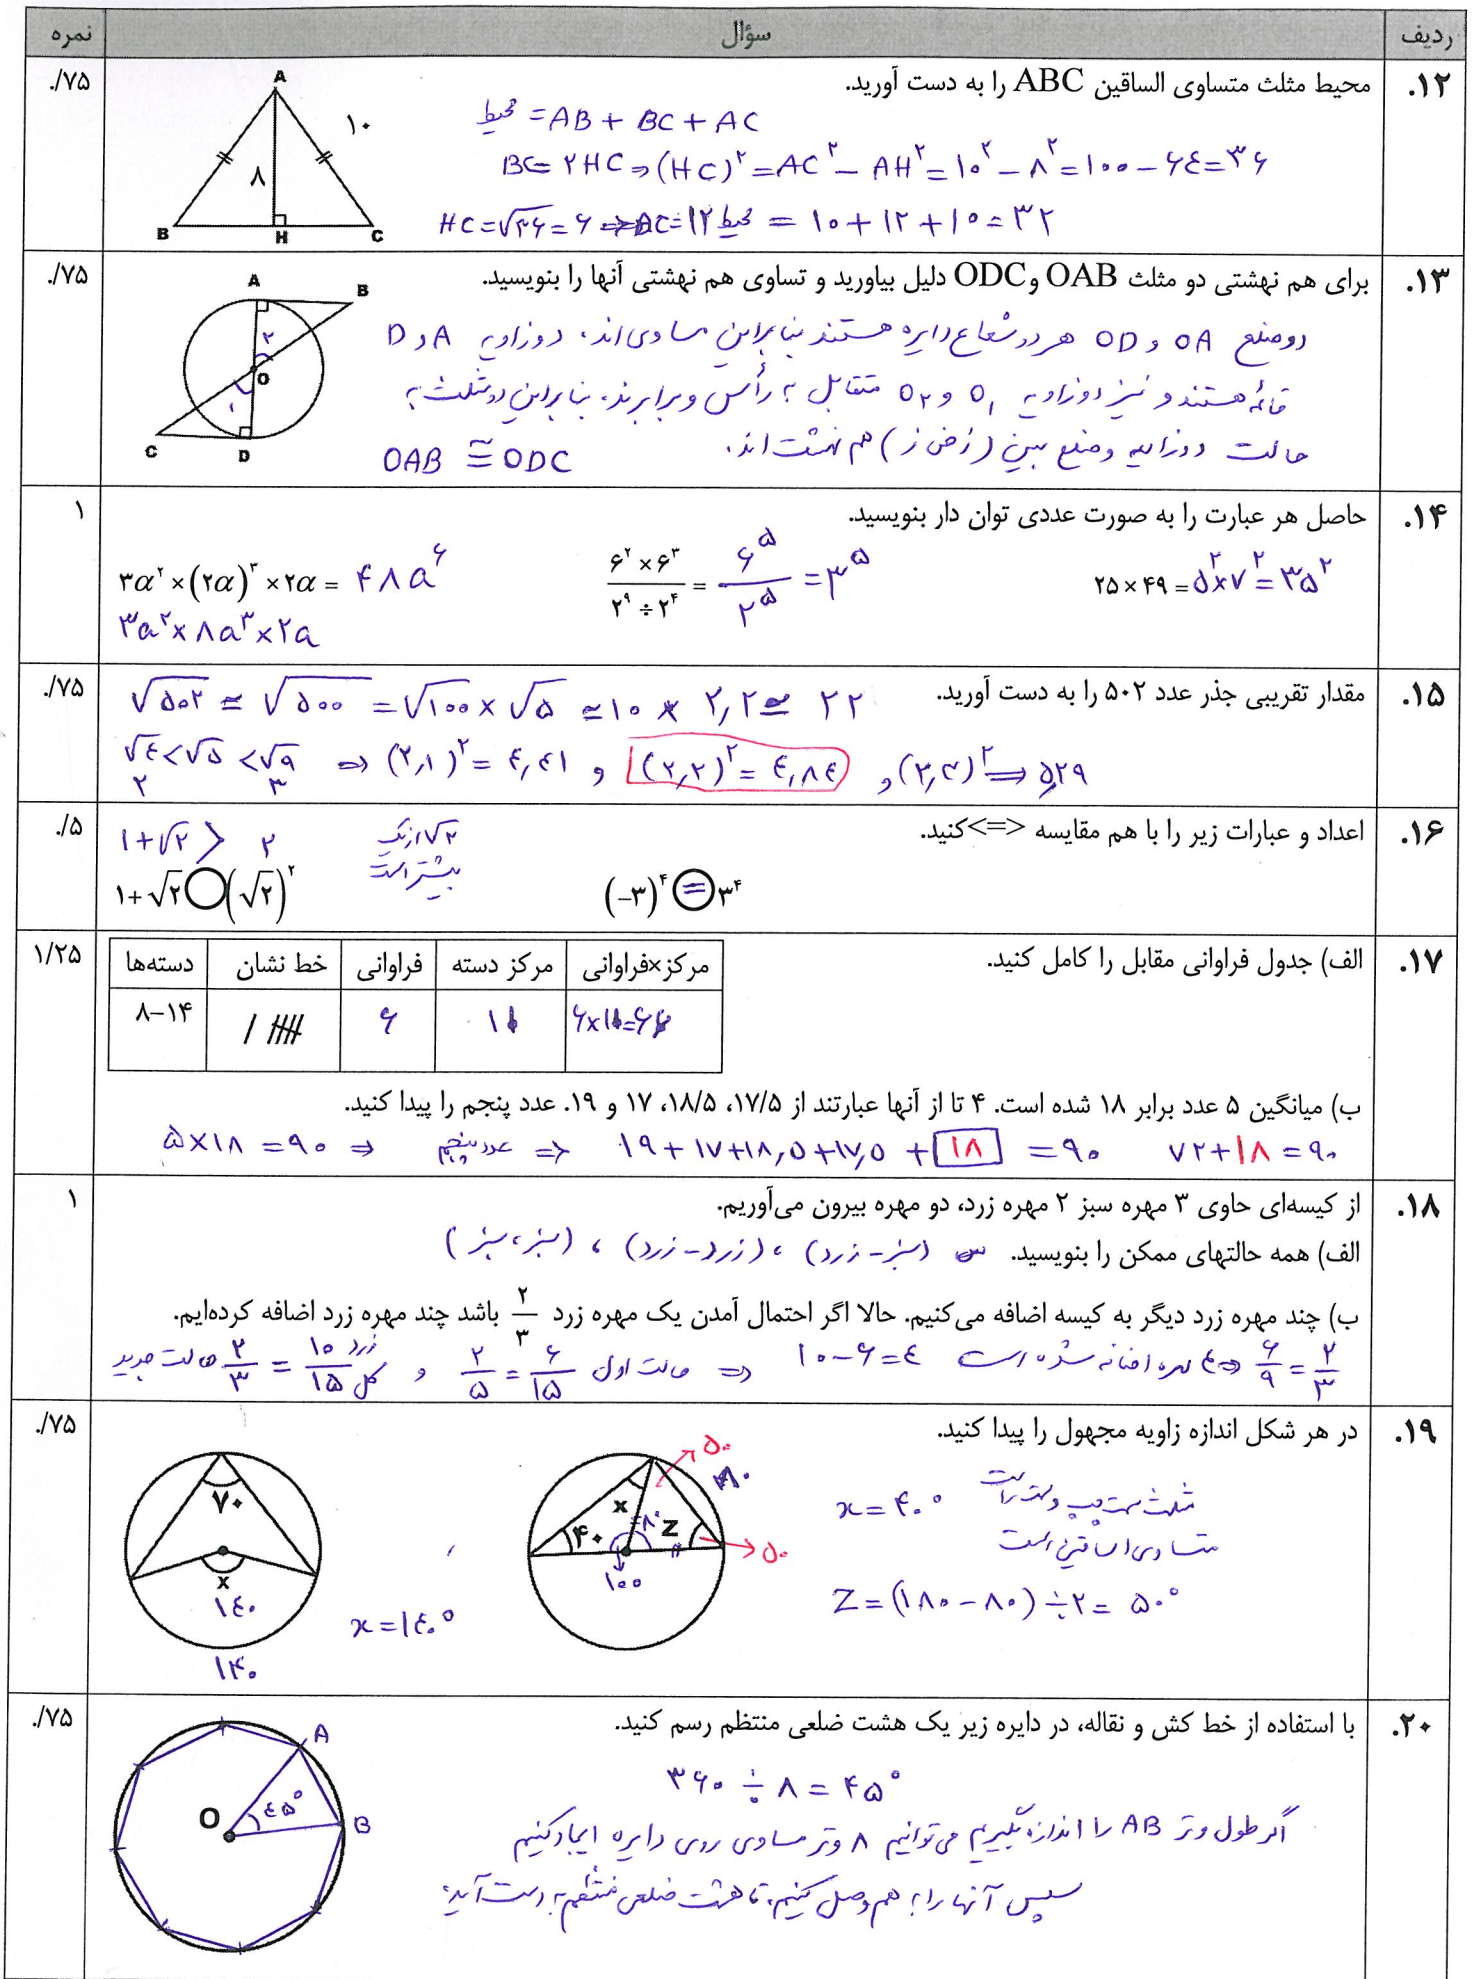 ردیف سؤال نمره
۱۲. محیط مثلث متساوی الساقین ABC را به دست آورید. ۰/۷۵
A
۱۰
۸
B H C
محیط = AB + BC + AC
BC = ۲HC ⇒ (HC)^۲ = AC^۲ − AH^۲ = ۱۰^۲ − ۸^۲ = ۱۰۰ − ۶۴ = ۳۶
HC = √۳۶ = ۶ ⇒ BC = ۱۲ محیط = ۱۰ + ۱۲ + ۱۰ = ۳۲
۱۳. برای هم نهشتی دو مثلث OAB وODC دلیل بیاورید و تساوی هم نهشتی آنها را بنویسید. ۰/۷۵
A B
۲
O
۱
C D
دو ضلع OA و OD هر دو شعاع دایره هستند بنابراین مساوی اند، دو زاویه A و D
قائمه هستند و نیز دو زاویه O۱ و O۲ متقابل به رأس و برابرند، بنابراین دو مثلث به
حالت دو زاویه و ضلع بین (ز ض ز) هم نهشت اند.
OAB ≅ ODC
۱۴. حاصل هر عبارت را به صورت عددی توان دار بنویسید. ۱
۲۵ × ۴۹ = ۵^۲ × ۷^۲ = ۳۵^۲
(۶^۲ × ۶^۳)/(۲^۹ ÷ ۲^۴) = ۶^۵/۲^۵ = ۳^۵
۳a^۲ × (۲a)^۳ × ۲a = ۴۸a^۶
۳a^۲ × ۸a^۳ × ۲a
۱۵. مقدار تقریبی جذر عدد ۵۰۲ را به دست آورید. ۰/۷۵
√۵۰۲ ≃ √۵۰۰ = √۱۰۰ × √۵ ≃ ۱۰ × ۲٫۲ ≃ ۲۲
√۴ < √۵ < √۹ ⇒ (۲٫۱)^۲ = ۴٫۴۱ و (۲٫۲)^۲ = ۴٫۸۴ و (۲٫۳)^۲ ⇒ ۵٫۲۹
۲ ۳
۱۶. اعداد و عبارات زیر را با هم مقایسه <=> کنید. ۰/۵
۱+√۲ > ۲
√۲ از یک
بیشتر است
(−۳)^۴ = ۳^۴
۱+√۲ ○ (√۲)^۲
۱۷. الف) جدول فراوانی مقابل را کامل کنید. ۱/۲۵
دسته‌ها خط نشان فراوانی مرکز دسته مرکز×فراوانی
۸−۱۴ ۶ ۱۱ ۶×۱۱=۶۶
ب) میانگین ۵ عدد برابر ۱۸ شده است. ۴ تا از آنها عبارتند از ۱۷/۵، ۱۸/۵، ۱۷ و ۱۹. عدد پنجم را پیدا کنید.
۵×۱۸ = ۹۰ ⇒ عدد پنجم ⇒ ۱۹ + ۱۷ + ۱۸٫۵ + ۱۷٫۵ + ۱۸ = ۹۰ ۷۲ + ۱۸ = ۹۰
۱۸. از کیسه‌ای حاوی ۳ مهره سبز ۲ مهره زرد، دو مهره بیرون می‌آوریم. ۱
الف) همه حالتهای ممکن را بنویسید. (سبز - زرد) ، (زرد - زرد) ، (سبز، سبز)
ب) چند مهره زرد دیگر به کیسه اضافه می‌کنیم. حالا اگر احتمال آمدن یک مهره زرد ۲/۳ باشد چند مهره زرد اضافه کرده‌ایم.
۲/۳ = ۶/۹ ⇒ ۴ مهره اضافه شده است ۱۰ − ۶ = ۴ ⇐ حالت اول ۶/۱۵ = ۲/۵ و حالت جدید ۲/۳ = ۱۰/۱۵ زرد کل
۱۹. در هر شکل اندازه زاویه مجهول را پیدا کنید. ۰/۷۵
مثلث سمت چپ و سمت راست
متساوی الساقین است
x = ۴۰°
Z = (۱۸۰ − ۸۰) ÷ ۲ = ۵۰°
۵۰
۸۰
x
۴۰ ۸۰ Z
۵۰
۱۰۰
۷۰
x
۱۴۰
x = ۱۴۰°
۱۴۰
۲۰. با استفاده از خط کش و نقاله، در دایره زیر یک هشت ضلعی منتظم رسم کنید. ۰/۷۵
۳۶۰ ÷ ۸ = ۴۵°
اگر طول وتر AB را اندازه بگیریم می توانیم ۸ وتر مساوی روی دایره ایجاد کنیم
سپس آنها را به هم وصل کنیم، تا هشت ضلعی منتظم به دست آید.
A
O ۴۵° B